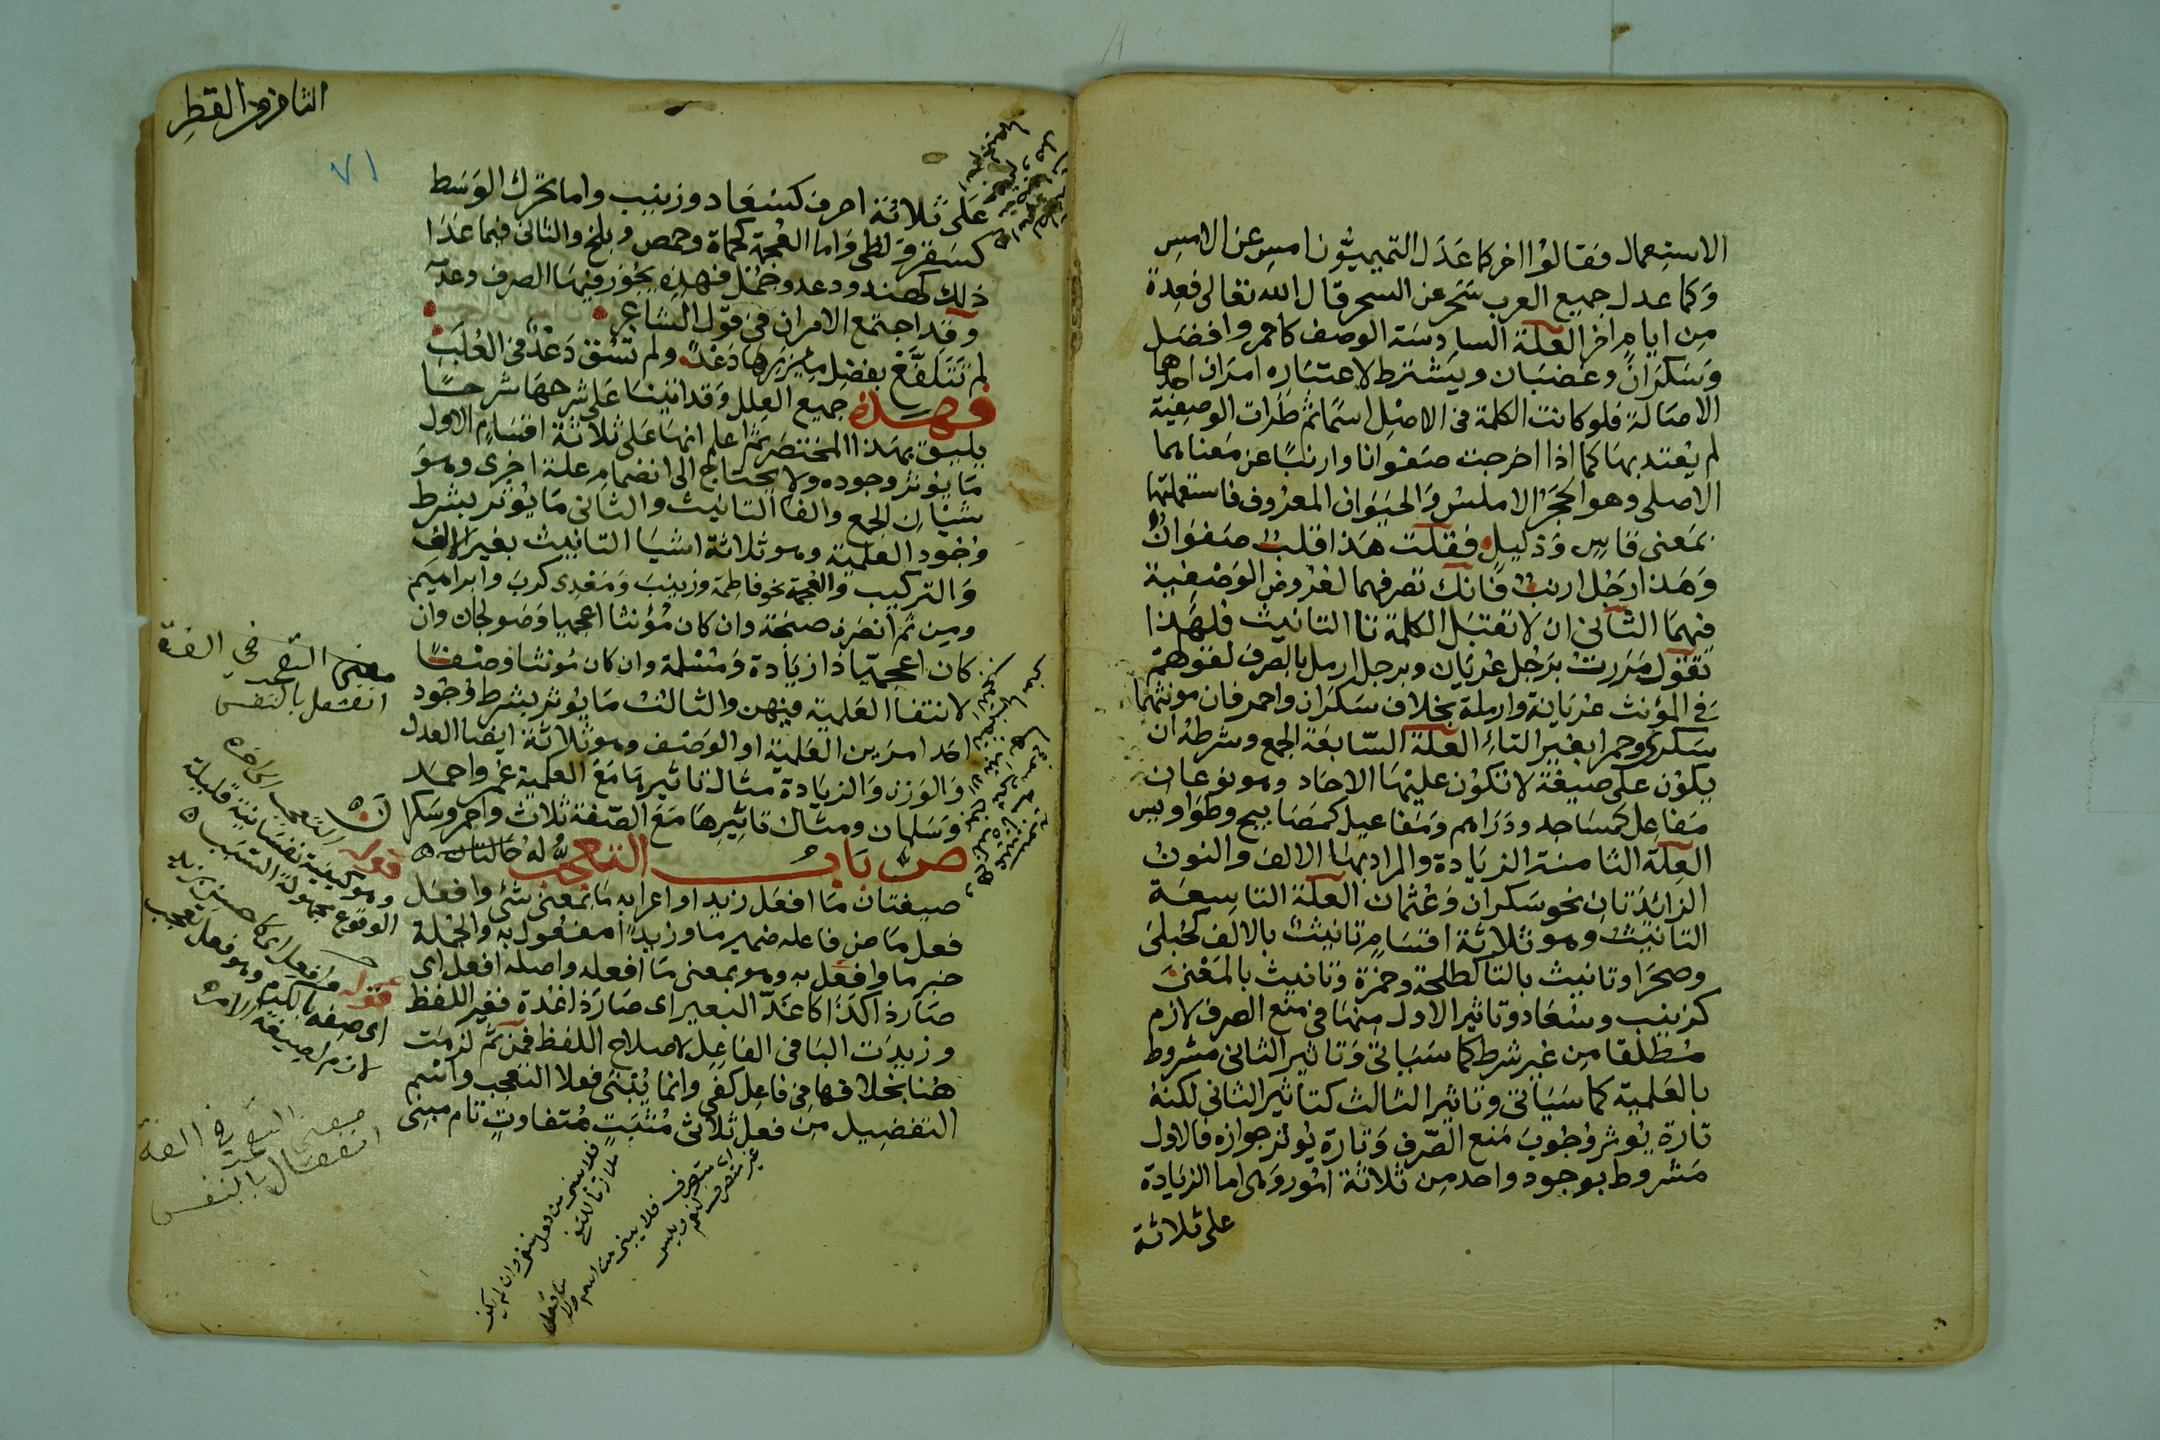 الاستعمال فقالوا اخر كما عدل التميميّون امسِ عن الامسِ
وَكما عدل جميع العرب سَحَر عن السحر قال الله تعالى فعِدة
مِن ايامٍ اخر العلّة السادسَة الوصف كاحمر وافضل
وَسَكرَان وغضبَان ويشترط لاعتبَاره امرَان احدهما
الاصَالة فلو كانت الكلمة فى الاصْلِ اسمًا ثم طَرَات الوصفيّة
لم يُعتد بهَا كما اذا اخرجت صَفوانا وارنبًا عن مَعناهما
الاصلى وهو الحَجَر الاملسُ وَالحيَوَان المعرُوف فاستعملتها
بمَعنى قاسٍ وَذليل فقلت هَذا قلبٌ صَفوَانٌ
وَهَذا رَجُل ارنبٌ فانّك تصرفهما لعُروض الوَصْفية
فيهمَا الثانى ان لا تقتبَل الكلمة تا التانيث فلهَذا
تقوُل مَرَرتُ برَجُل عُريَان وبرجل ارمل بالصرف لقولهم
فى المؤنث عُريَانة وارملة بخلاف سَكرَان واحمر فان مونثهما
سَكرى وحمرا بغير التاءِ العلّة السّابعَة الجمع وشرطهُ ان
يكون على صيغَة لا تكون عليْهَا الاحاد وهو نوعان
مَفاعِل كمسَاجد ودَرَاهم وَمَفاعيل كمصَابيح وطوَاويس
العِلّة الثامنة الزيَادة والمراد بهَا الالف والنون
الزائدَتان نحو سَكران وَعُثمان العلّة التاسِعَة
التانيث وهو ثلاثة اقسَامٍ تانيث بالالف كحُبلى
وصحرَا وتانيث بالتا كطلحة وحمزة وتانيث بالمَعْنى
كزينب وسُعَاد وتاثير الاول منهَا فى منع الصرف لازم
مُطلقا من غير شرط كما سَيَاتى وَتاثير الثانى مشروط
بالعَلمية كما سَيَاتى وتاثير الثالث كتاثير الثانى لكنّهُ
تارة يُوثر وُجُوبَ مَنع الصّرف وَتارة يُوثر جوازه فالاول
مَشروط بوجود واحد مِن ثلاثة امُور وَهى اما الزيَادة
على ثلاثة
الثامن من القطر
٧١
عَلى ثلاثة احرف كسُعَاد وزينب واما تحرك الوَسَط
كسَقر وَلظى وَاما العُجمة كحماة وحمص وبلخ والثانى فيما عَدَا
ذلك كهند ودعد وجُمْل فهذِه يجُوز فيهَا الصرف وعدمه
وقد اجتمع الامران فى قول الشاعر
لم تتَلَفّعْ بفَضلِ مِئزرِهَا دَعْدٌ ولم تُسْقَ دَعْدُ فى العُلَبِ
فهذه جميع العِلل وَقد اتينَا عَلى شرحهَا شرحًا
يليق بهذا المختصَر ثم اعلم انهَا عَلى ثلاثة اقسَامٍ الاول
مَا يوثر وجوده ولا يحتاج الى انضمام علة اخرى وهوَ
شيْآنِ الجمع والفا التانيث والثانى مَا يُوثر بشرط
وُجُود العلميّة وهو ثلاثة اشيَا التانيث بغير الالف
وَالتركيب والعُجمة نحو فاطمة وزينبَ وَمَعْدى كربَ وابراهيم
ومِن ثَمّ انصَرف صنجَة وان كان مُؤنثا اعجميا وَصَولجان وان
كان اعجميّا ذا زيَادة وَمُسْلمة وان كان مُونثا وَصفًا
لانتفا العَلمية فيهن والثالث مَا يُوثر بشرط وُجُود
احَد امرَين العَلمية او الوَصْف وهو ثلاثة ايضا العدل
وَالوَزن وَالزيَادة مثال تاثيرهَا مَعَ العلمية عُمَر واحمد
وَسَلمان ومثال تاثيرهَا مَعَ الصّفة ثلاث واحمر وسكران
ص باب التعجب لهُ
صيغتان مَا افعَل زيدا واعرابه مَا بمَعنى شئ وافعَل
فعل مَاض فاعله ضمير ما وزيدًا مفعُول به والجُملة
خبر ما وافعِل به وهو بمعنى مَا افعله واصله افعل اى
صَار ذا كذا كاغدّ البَعير اى صَار ذا غُدة فغير اللفظ
وزيدَت البَا فى الفاعِل لاصلاح اللفظ فمن ثَمّ لزمت
هُنا بخلافها فى فاعِل كفى وانما يُبْنى فعلا التعجب واسْم
التفضيل مِن فعل ثلاثى مُثبَتٍ مُتفاوتٍ تام مبنى
معنى التعجب فى اللغة
انفعال بالنفس
وهو كيفية نفسَانية قليلة
الوقوع مجهولة السَبب
معنى التعجب فى اللغة
انفعال بالنفس